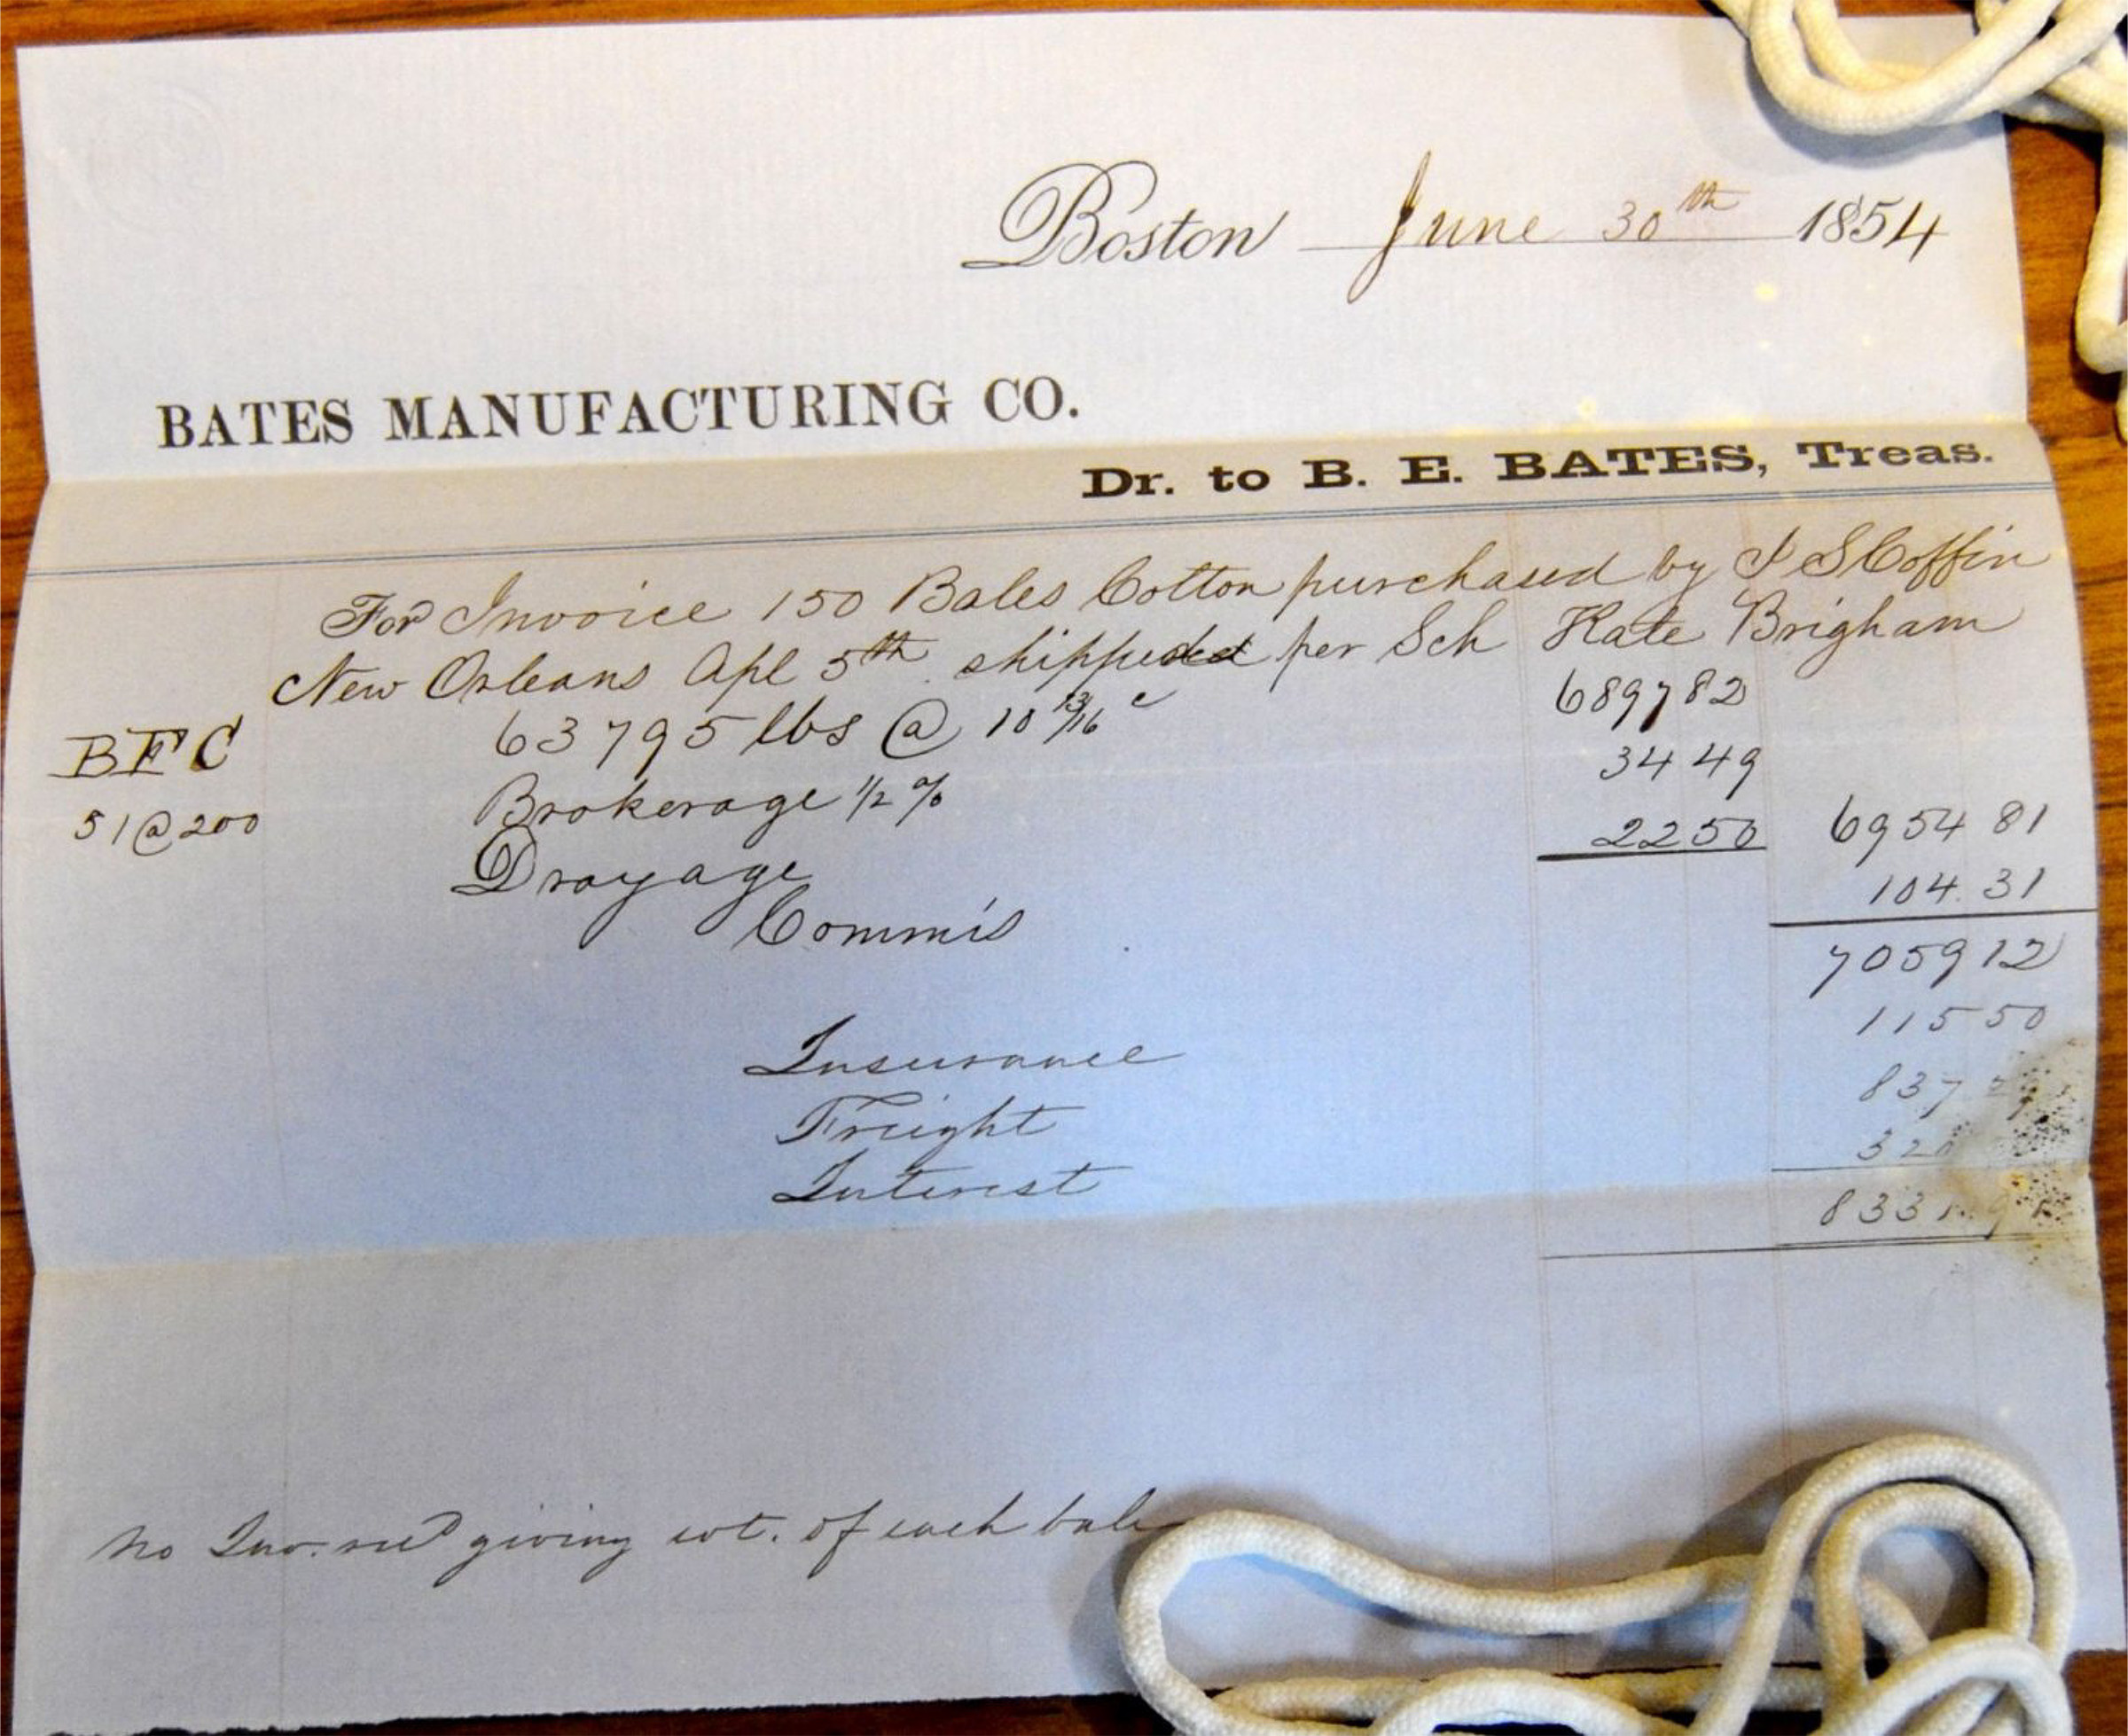 Boston June 30th 1854
BATES MANUFACTURING CO.
Dr. to B. E. BATES, Treas.
For Invoice 150 Bales Cotton purchased by I S Coffin
New Orleans Apl 5th shipped per Sch Kate Brigham
BFC 63795 lbs @ 10 13/16 c 6897 82
51@200 Brokerage 1/2 % 34 49
Drayage 22 50 6954 81
Commis 104.31
7059 12
Insurance 115 50
Freight 837
Interest
8331
No Inv. recd giving wt. of each bale